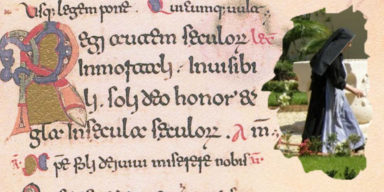 Usq; legem pone. Quicumq; vult
Regi autem seculoꝝ
Inmortali. Invisibi
li. soli deo honor &
gl̄a in secula seculoꝝ. Am̄.
xp̄e fili dei vivi miserere nobis